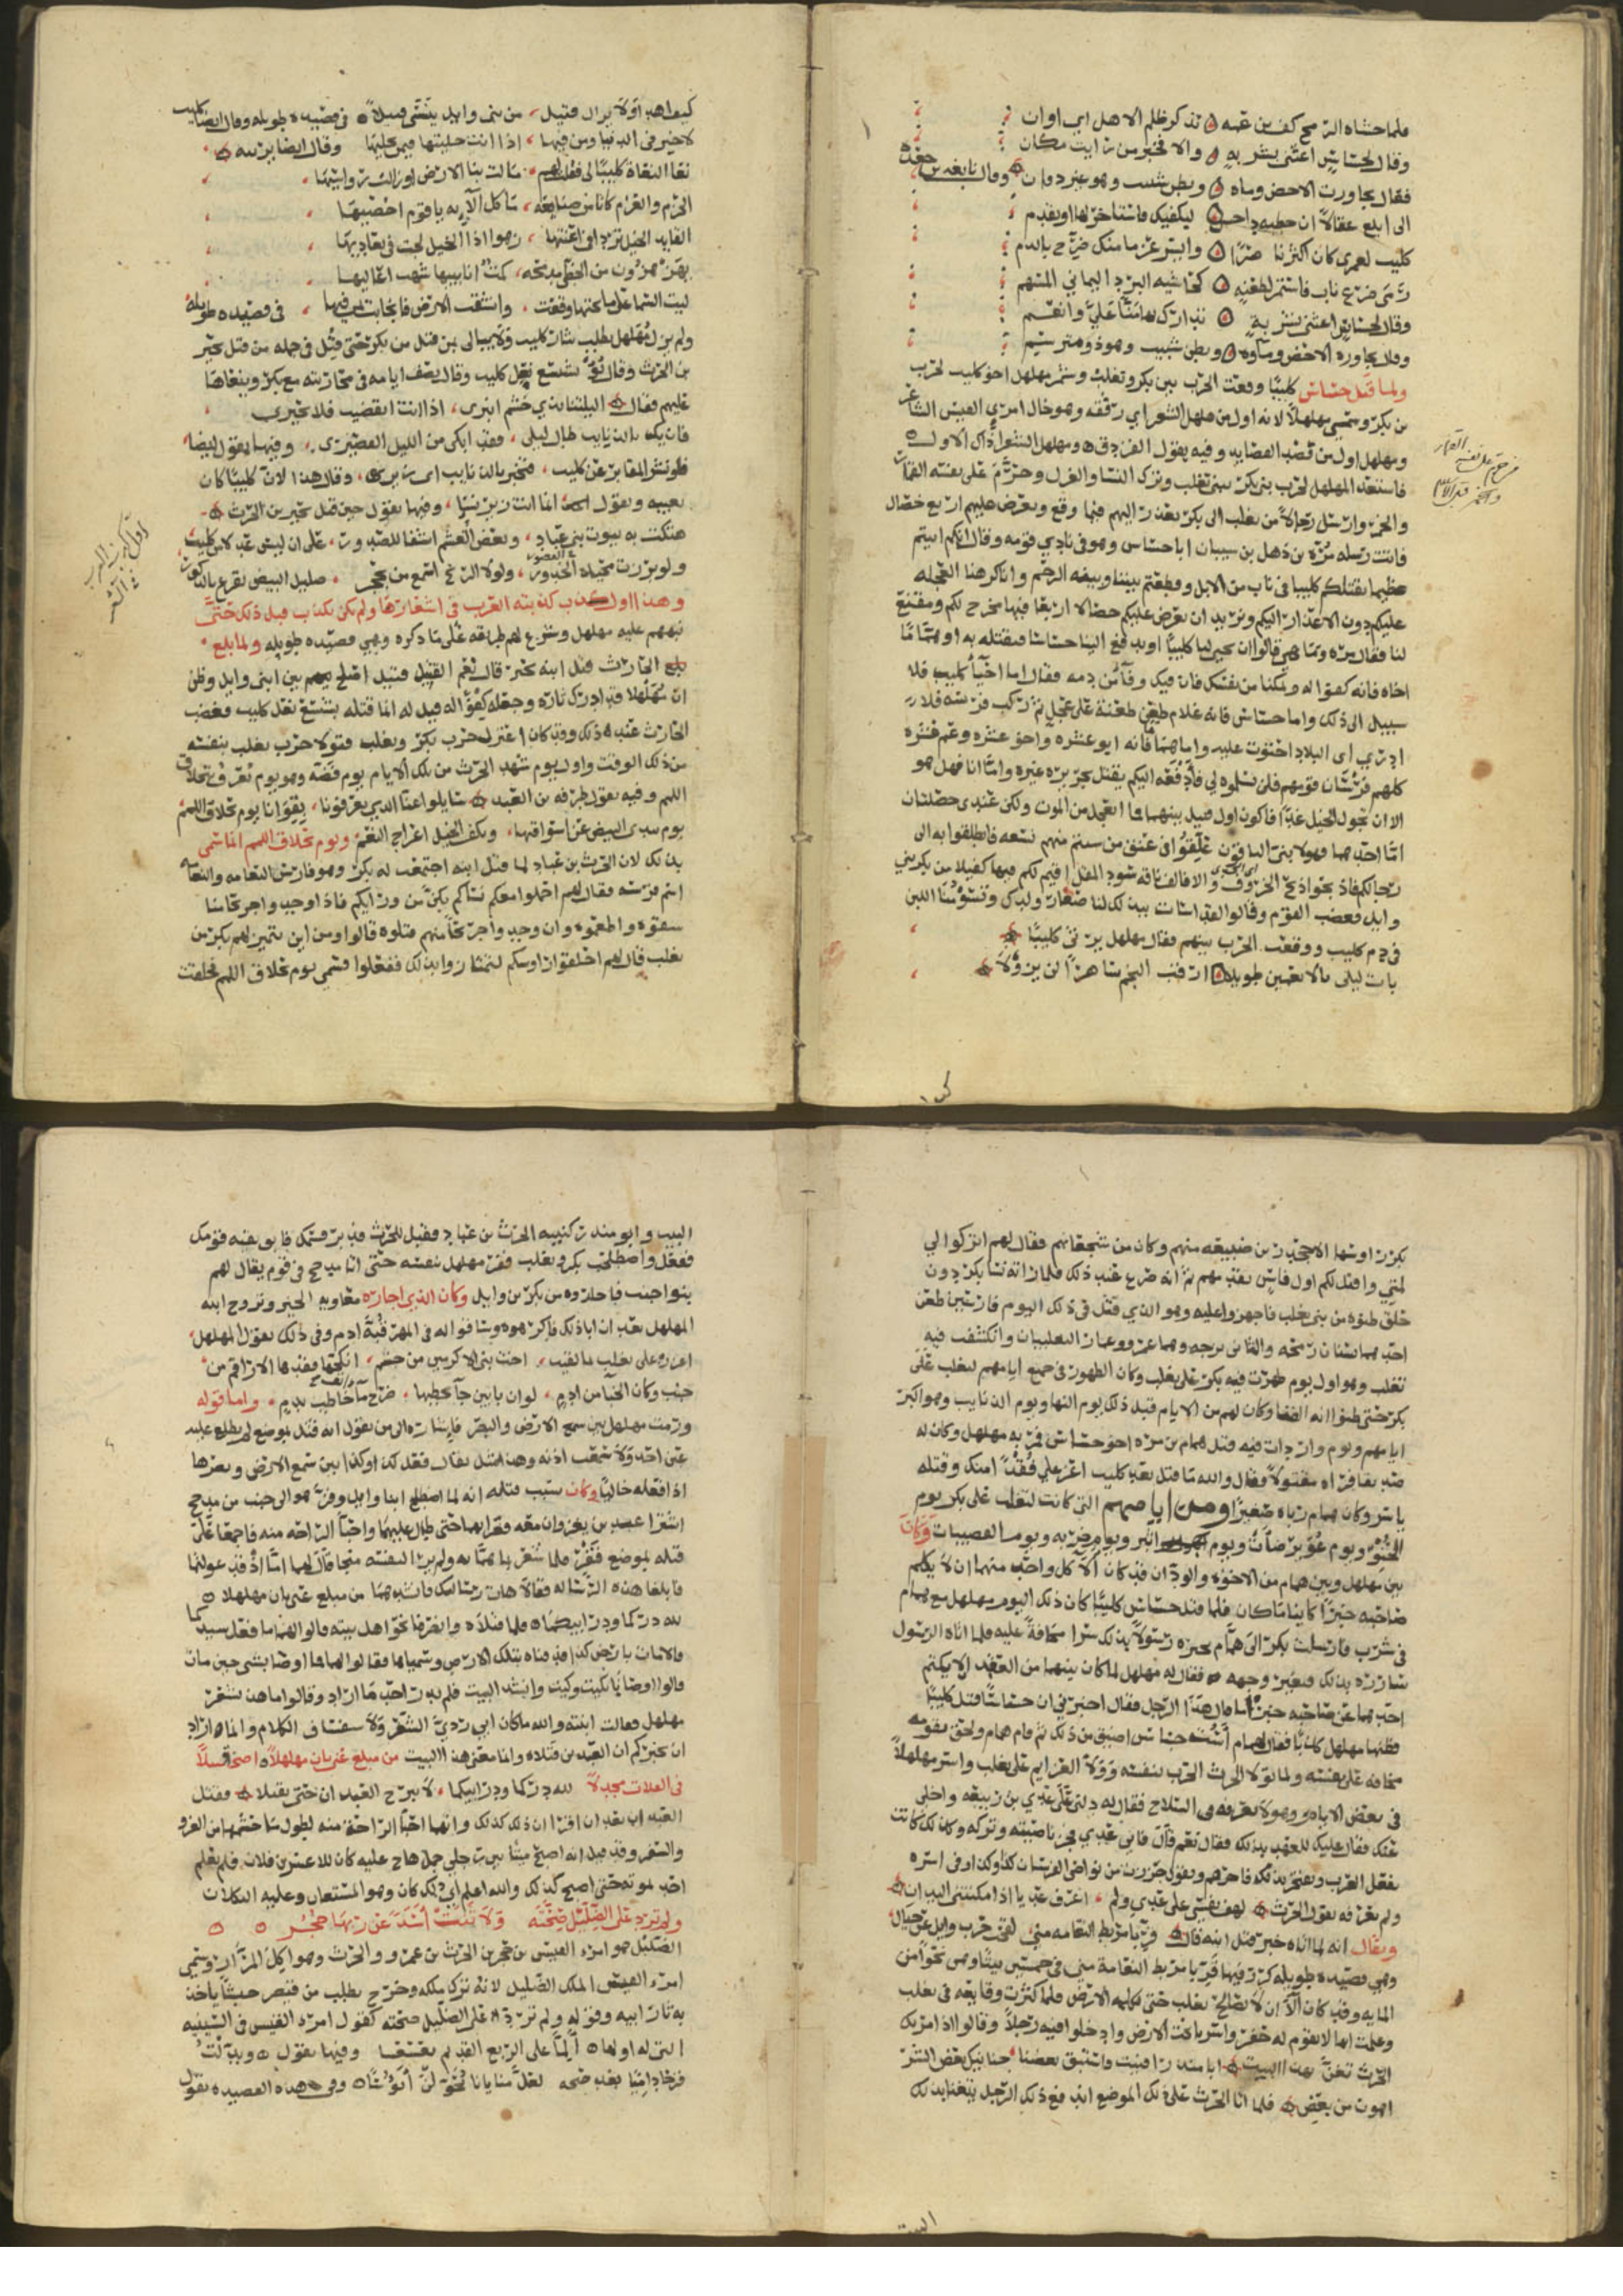 فلما حشاه الرمح كف بن عمه تذكر ظلم الاهل اي اوان
وقال لجساس اغثني بشربه والا فخبر من رايت مكان
فقال تجاورت الاحص وماه وبطن شبيب وهو غير دفان وقال نابغه بن جعده
الى ابلغ عقالا ان داحس ليكفيك فاستاخر لها او تقدم
كليب لعمري كان اكثر ناصرا وايسر عزما منك ضرج بالدم
رمى ضرع ناب فاستمر بطعنه كحاشيه البرد اليماني المسهم
وقال لجساس اغثني بشربه تدارك بها منا علي وانعم
وقال تجاوزه الاحص وماوه وبطن شبيب وهو ذو مترسم
ولما قتل جساس كليبا وقعت الحرب بين بكر وتغلب وشمر مهلهل اخو كليب لحرب
بن بكر وسمي مهلهلا لانه اول من هلهل الشعر اي رققه وهو خال امري القيس الشاعر
ومهلهل اول من قصد القصايد وفيه يقول الفرزدق ومهلهل الشعراء ذاك الاول
فاستعد المهلهل لحرب بني بكر ببني تغلب وترك النسا والغزل وحرم على نفسه القمار
والخمر وارسل رجالا من تغلب الى بكر يعذر اليهم فيما وقع ويعرض عليهم اربع خصال
فاتت رسله مره بن ذهل بن سيبان ابا جساس وهو في نادي قومه وقالوا انكم اتيتم
عظيما بقتلكم كليبا في ناب من الابل وقطعتم بيننا وبينه الرحم وانا كرهنا العجله
عليكم دون الاعذار اليكم ونريد ان نعرض عليكم خصالا اربعا فيها مخرج لكم ومقنع
لنا فقال مره وما هي قالوا ان تحيي لنا كليبا او تدفع الينا جساسا فنقتله به او هماما
اخاه فانه كفو له وتمكنا من نفسك فان فيك وفا من دمه فقال اما احيا كليب فلا
سبيل الى ذلك واما جساس فانه غلام طعن طعنة على عجل ثم ركب فرسه فلا
ادري اي البلاد احتوت عليه واما همام فانه ابو عشره واخو عشره وعم عشره
كلهم فرسان قومهم فلن يسلموه لي فادفعه اليكم يقتل بجريره غيره واما انا فهل هو
الا ان تجول الخيل غدا فاكون اول قتيل بينهما فما اتعجل من الموت ولكن عندي خصلتان
اما احدهما فهولا بني الباقون علقوا في عنق من شيتم منهم نسعه فانطلقوا به الى
رحالكم فاذبحوا ذبح الخروف والا فالف ناقه سود المقل اقيم لكم فيها كفيلا من بكر بني
وايل فغضب القوم وقالوا لقد اسات تبذل لنا صغار ولدك وتسومنا اللبن
في دم كليب ووقعت الحرب بينهم فقال مهلهل يرثي كليبا
بات ليلي بالانعمين طويلا ارقب النجم ساهرا لن يزولا
كيف اهدا ولا يزال قتيل من بني وايل ينسي قتيلا في قصيده طويله وقال ايضا كليب
لا خير في الدنيا ومن فيها اذا انت خليتها فيمن يخليها وقال ايضا يرثيه
نعا النعاة كليبا لي فقلت لهم مالت بنا الارض او زالت رواسيها
الحزم والعزم كانا من صنايعه ما كل الايه يا قوم احصيها
القايد الخيل تردى في اعنتها زهوا اذا الخيل لجت في تعاديها
ليت السما على ما تحتها وقعت وانشقت الارض فانجابت بمن فيها في قصيده طويله
ولم يزل مهلهل يطلب بثار كليب ولا يبالي بمن قتل من بكر حتى قتل في جمله من قتل بجير
بن الحرث وقال بؤ بشسع نعل كليب وقال يصف ايامه في محاربته مع بكر وينعاها
عليهم فقال اليلتنا بذي حشم انيري اذا انت انقضيت فلا تحوري
فان يك بالذنايب طال ليلي فقد ابكي من الليل القصير وفيها يقول ايضا
فلو نشر المقابر عن كليب فتخبر بالذنايب اي زير وقال هذا لان كليبا كان
يعيبه ويقول له انما انت زير نسا وفيها يقول حين قتل بجير بن الحرث
هتكت به بيوت بني عباد وبعض القتل اشفا للصدور على ان ليس عدلا من كليب
ولو برزت مخباة الخدور ولولا الريح اسمع من بحجر صليل البيض تقرع بالذكور
وهذا اول كذب كذبته العرب في اشعارها ولم يكن يكذب قبل ذلك حتى
نبههم عليه مهلهل وشرع لهم طريقه على ما ذكره وهي قصيده طويله ولما بلغ
بلغ الحارث قتل ابنه بجير قال نعم القتيل قتيل اصلح بين ابني وايل وظن
ان مهلهلا قد ادرك ثاره وجعله كفوا له فقيل له انما قتله بشسع نعل كليب فغضب
الحارث عند ذلك وقد كان اعتزل حرب بكر وتغلب فتولا حرب تغلب بنفسه
من ذلك الوقت واول يوم شهد الحرث من تلك الايام يوم قضه وهو يوم تعرف بتحلاق
اللمم وفيه يقول طرفه بن العبد سايلوا عنا الذي يعرفونا بقوانا يوم تحلاق اللمم
يوم تبدي البيض عن اسواقها وتلف الخيل اعراج النعم ويوم تحلاق اللمم انما سمي
بذلك لان الحرث بن عباد لما قتل ابنه اجتمعت له بكر وهو فارس النعامه والنعامه
اسم فرسه فقال لهم احملوا معكم نساكم يكن من ورايكم فاذا وجدوا جريحا منا
سقوه واطعموه وان وجدوا جريحا منهم قتلوه قالوا ومن اين يتميز لهم بكر من
تغلب قال لهم احلقوا روسكم لتمتازوا بذلك ففعلوا فسمي يوم تحلاق اللمم فحلقت
بكر روسها الا جحدر بن ضبيعه منهم وكان من شجعانهم فقال لهم اتركوا لي
لمتي واقتل لكم اول فارس يقدمهم ثم انه صرع عند ذلك فلما راته نسا بكر دون
حلق ظنوه من بني تغلب فاجهزوا عليه وهو الذي قتل في ذلك اليوم فارسين طعن
احدهما بسنان رمحه والثاني بزجه وهما عمرو وعامر التغلبيان وانكشفت فيه
تغلب وهو اول يوم ظهرت فيه بكر على تغلب وكان الظهور في جميع ايامهم لتغلب على
بكر حتى ظنوا انه الفنا وكان لهم من الايام قبل ذلك يوم النهي ويوم الذنايب وهو اكبر
ايامهم ويوم واردات فيه قتل همام بن مره اخو جساس فمر به مهلهل وكان له
صديقا فراه مقتولا فقال والله ما قتل بعد كليب اعز علي فقدا منك وقتله
ناشر وكان همام رباه صغيرا ومن ايامهم التي كانت لتغلب على بكر يوم
الحنو ويوم عويرضات ويوم انيق ويوم ضريه ويوم القصيبات وكان
بين مهلهل وبين همام من الاخوه والود ان قد كان آلا كل واحد منهما ان لا يكلم
صاحبه خبرا كاينا ما كان فلما قتل جساس كليبا كان ذلك اليوم مهلهل مع همام
في شرب فارسلت بكر الى همام تخبره رسولا بذلك سرا مخافة عليه فلما اتاه الرسول
سارره بذلك فتغير وجهه فقال له مهلهل لما كان بينهما من العهد الا يكتم
احدهما عن صاحبه خبرا ما قال هذا الرجل فقال اخبرني ان جساسا قتل كليبا
فظنها مهلهل كذبا فقال همام است جساس اضيق من ذلك ثم قام همام ولحق بقومه
مخافه على نفسه ولما تولا الحرث الحرب بنفسه وولا الهزايم على تغلب واسر مهلهلا
في بعض الايام وهو لا يعرفه في السلاح فقال له دلني على عدي بن ربيعه واخلي
عنك فقال عليك العهد بذلك فقال نعم قال فاني عدي فجز ناصيته وتركه وكذلك كانت
تفعل العرب وتفتخر بذلك
ولم نعرفه يقول الحرث لهف نفسي على عدي ولم اعرف عديا اذا مكنتني اليدان
ويقال انه لما اتاه خبر قتل ابنه قال قربا مربط النعامه مني لقحت حرب وايل عن حيال
وهي قصيده طويله كرر فيها قربا مربط النعامة مني في خمسين بيتا وهي نحوا من
المايه وقد كان آلا ان لا يصالح تغلب حتى تكلمه الارض فلما كثرت وقايعه في تغلب
وعلمت انها لا تقوم له حفروا سربا تحت الارض وادخلوا فيه رجلا وقالوا اذا مر بك
الحرث تغن بهذا البيت ابا منذر افنيت فاستبق بعضنا حنانيك بعض الشر
اهون من بعض فلما اتا الحرث على ذلك الموضع اندفع ذلك الرجل يتغنا بذلك
البيت وابو منذر كنيه الحرث بن عباد فقيل للحرث قد بر قسمك فابق بقيه قومك
ففعل واصطلحت بكر وتغلب ففر مهلهل بنفسه حتى اتا مذحج في قوم يقال لهم
بنوا جنب فاجاروه من بكر بن وايل وكان الذي اجاره معاويه الخير وتزوج ابنه
المهلهل بعد ان ابا ذلك فاكرهوه وساقوا له في المهر قبة ادم وفي ذلك يقول المهلهل
اعزز على تغلب بما لقيت اخت بني الاكرمين من جشم انكحها فقدها الاراقم من
جنب وكان الحبا من ادم لو ان بابين جا يخطبها ضرج ما خاطب بدم واما قوله
ورمت مهلهل بين سمع الارض والبصر فاشاره الى من يقول انه قتل بموضع لم يطلع عليه
عين احد ولا سمعت اذنه وهذا مثل يقال فعل كذا وكذا بين سمع الارض وبصرها
اذا فعله خاليا وكان سبب قتله انه لما اصطلح ابنا وايل وفر هو الى جنب من مذحج
اشترا عبدين يغزوان معه فغزا بهما حتى طال عليهما واحبا الراحه منه فاجمعا على
قتله بموضع قفر فلما شعر بما هما به ولم يرا لنفسه منجا قال لهما اما اذ قد عولتما
فابلغا هذه الرساله فقالا هات رسالتك فانشدهما من مبلغ عني بان مهلهلا
لله دركما ودر ابيكما فلما قتلاه وانصرفا نحو اهل بيته قالوا لهما ما فعل سيدكما
قالا مات بارض كذا فدفناه بتلك الارض وسمياها فقالوا لهما فما اوصا بشي حين مات
قالوا اوصانا بكيت وكيت وانشد البيت فلم يدر احد ما اراد وقالوا ما هذا بشعر
مهلهل فقالت ابنته والله ما كان ابي ردي الشعر ولا سفساف الكلام وانما اراد
ان يخبركم ان العبدين قتلاه وانما معنى هذا البيت من مبلغ عني بان مهلهلا اضحى قتيلا
في الفلات مجدلا لله دركما ودر ابيكما لا يبرح العبدان حتى يقتلا فقتل
العبدان بعد ان اقرا ان ذلك كذلك وانهما احبا الراحه منه لطول ما جشمهما من الغزو
والسفر وقد قيل انه اصبح ميتا بين رجلي جمل هاج عليه كان للاعسر بن فلان فلم يعلم
احد بموته حتى اصبح كذلك والله اعلم اي ذلك كان وهو المستعان وعليه التكلان
ولم ترد على الضليل صحته ولا ثنت اسدا عن ربها حجر
الضليل هو امرء القيس بن حجر بن الحرث بن عمرو والحرث وهو اكل المرار وسمي
امرء القيس الملك الضليل لانه ترك ملكه وخرج يطلب من قيصر جيشا ياخذ
به ثار ابيه وقوله ولم ترد على الضليل صحته كقول امرء القيس في السينيه
التي له اولها الما على الربع القديم بعسعسا وفيها يقول وبدلت
قرحا داميا بعد صحه لعل منايانا تحولن ابؤسا وفي هذه القصيده يقول